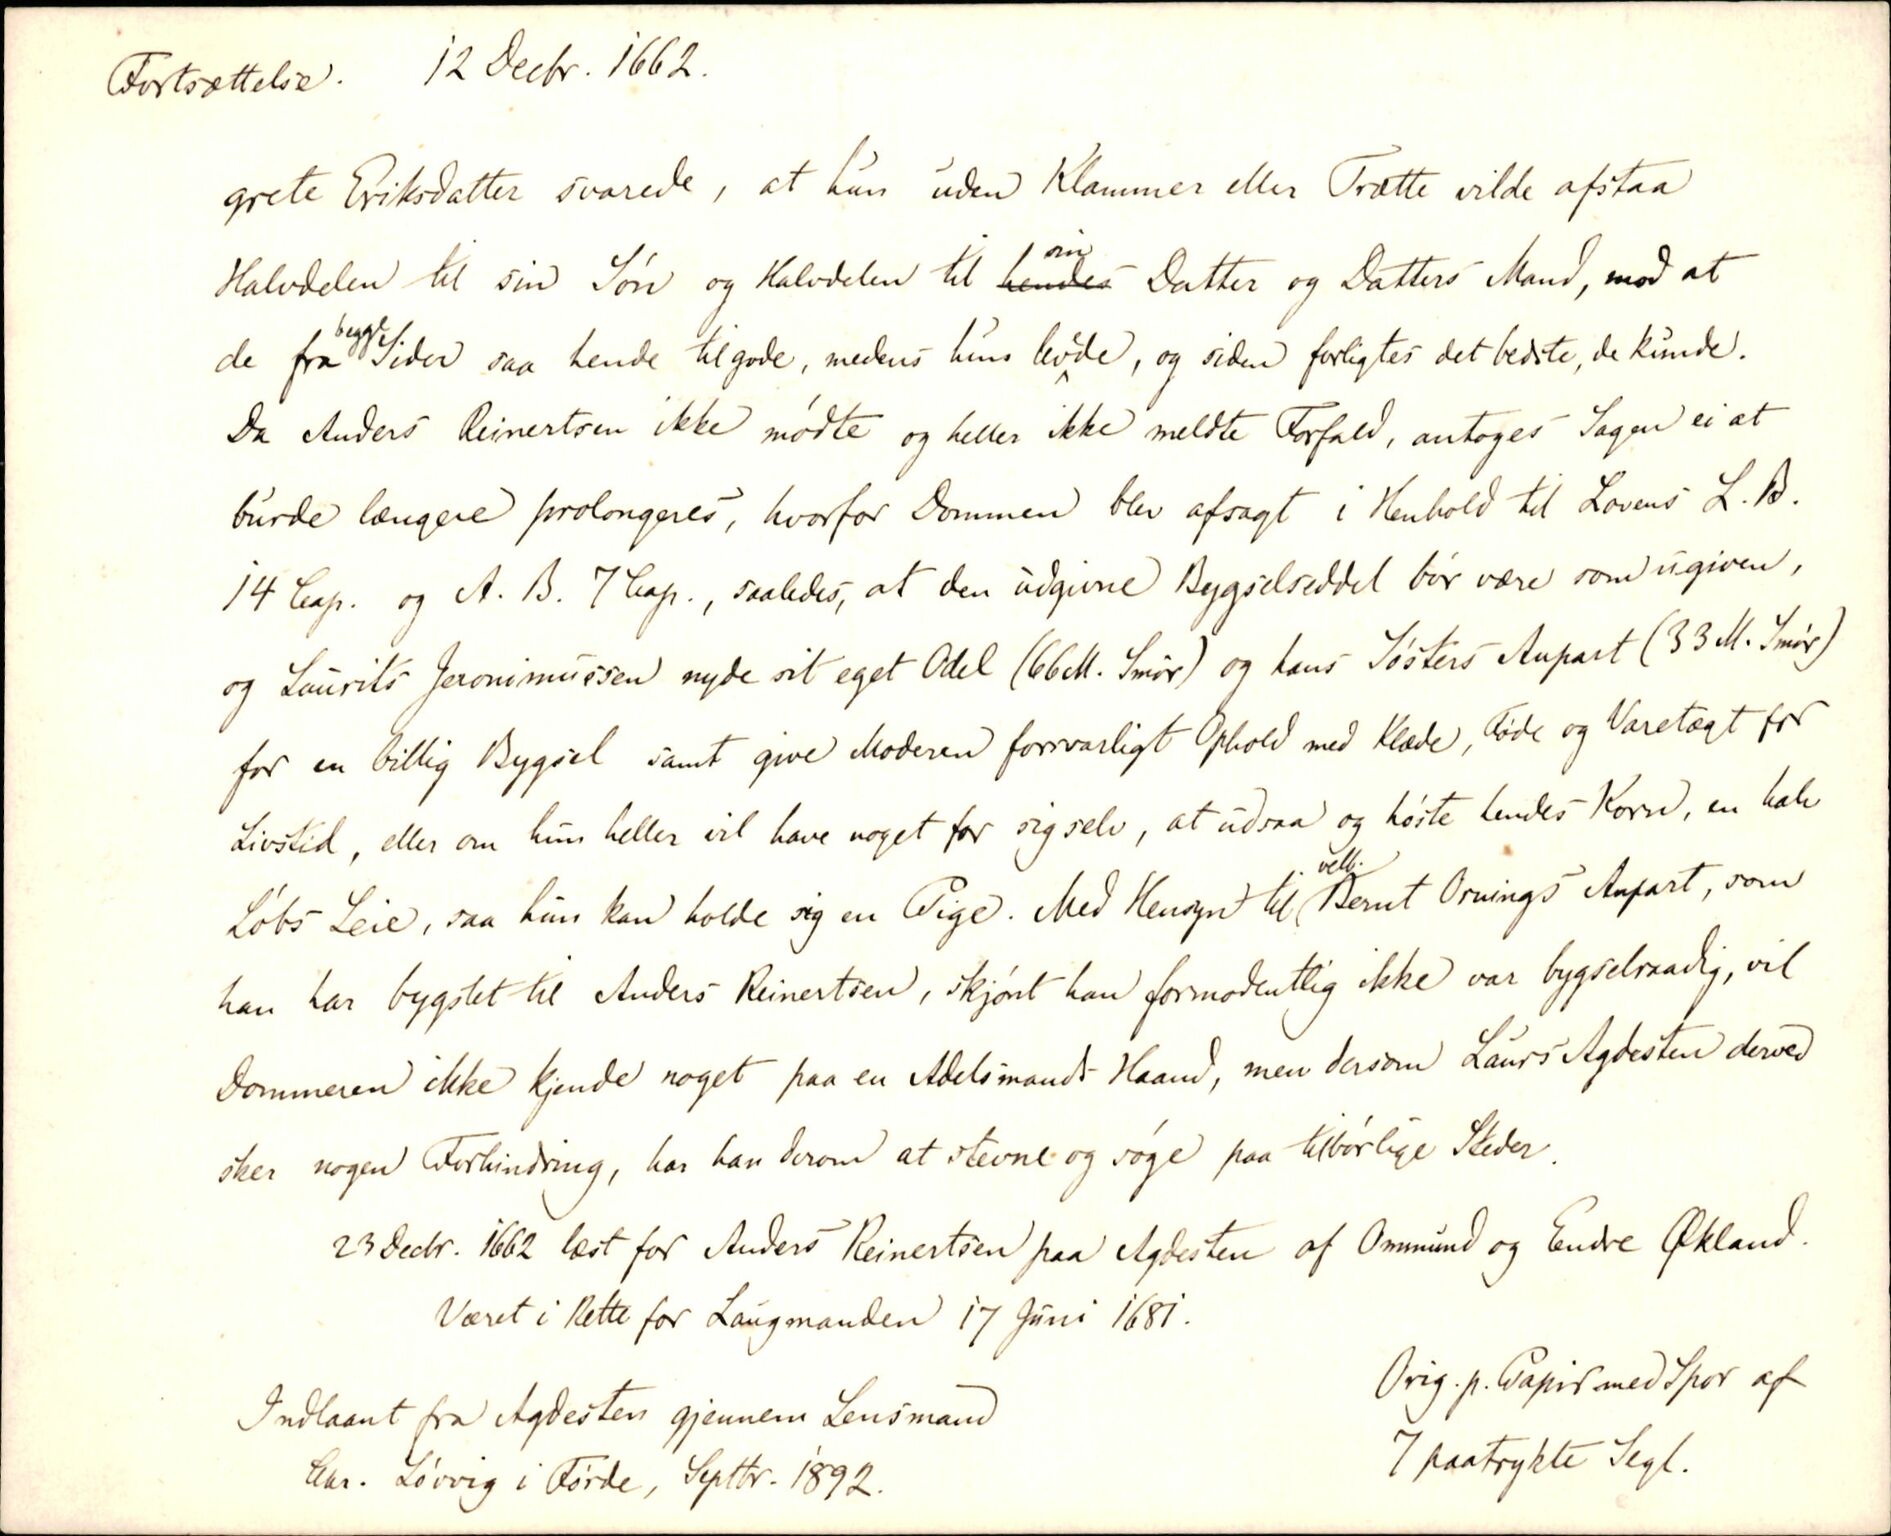 Fortsættelse. 12 Decbr. 1662.
grete Eriksdatter svarede, at hun uden Klammer eller Trætte vilde afstaa
Halvdelen til sin Søn og Halvdelen til hendes sin Datter og Datters Mand, mod at
de fra begge Sider saa hende tilgode, medens hun levde, og siden forligtes det bedste, de kunde.
Da Anders Reinertsen ikke mødte og heller ikke meldte Forfald, antoges Sagen ei at
burde længere prolongeres, hvorfor Dommen blev afsagt i Henhold til Lovens L. B.
14 Cap. og A. B. 7 Cap., saaledes, at den udgivne Bygselseddel bør være som ugiven,
og Laurits Jeronimussen nyde sit eget Odel (66 M. Smør) og hans Søsters Anpart (33 M. Smør)
for en billig Bygsel samt give Moderen forsvarligt Ophold med Klæde, Føde og Varetægt for
Livstid, eller om hun heller vil have noget for sig selv, at udsaa og høste hendes Korn, en halv
Løbs Leie, saa hun kan holde sig en Pige. Med Hensyn til velb. Bernt Ornings Anpart, som
han har bygslet til Anders Reinertsen, skjønt han formodentlig ikke var bygselraadig, vil
Dommeren ikke kjende noget paa en Adelsmands Haand, men dersom Laurs Agdesten derved
sker nogen Forhindring, har han derom at stevne og søge paa tilbørlige Steder.
23 Decbr. 1662 læst for Anders Reinertsen paa Agdesten af Ommund og Endre Økland.
Været i Rette for Laugmanden 17 Juni 1681.
Orig. p. Papir med Spor af
7 paatrykte Segl.
Indlaant fra Agdesten gjennem Lensmand
Chr. Løvvig i Førde, Septbr. 1892.